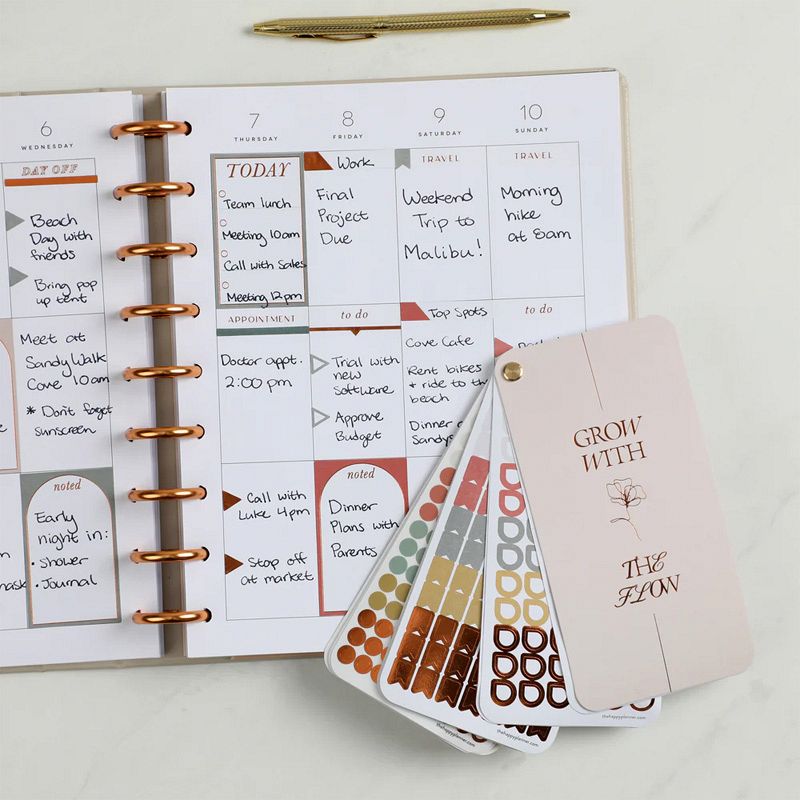 6
WEDNESDAY
DAY OFF
Beach
Day with
friends
Bring pop
up tent
Meet at
Sandy Walk
Cove 10am
* Don't forget
sunscreen
noted
Early
night in:
• Shower
• Journal
7
THURSDAY
TODAY
Team lunch
Meeting 10am
Call with Sales
Meeting 12pm
APPOINTMENT
Doctor appt.
2:00 pm
Call with
Luke 4pm
Stop off
at market
8
FRIDAY
Work
Final
Project
Due
to do
Trial with
new
software
Approve
Budget
noted
Dinner
Plans with
Parents
9
SATURDAY
TRAVEL
Weekend
Trip to
Malibu!
Top Spots
Cove Cafe
Rent bikes
+ ride to the
beach
Dinner
10
SUNDAY
TRAVEL
Morning
hike
at 8am
to do
GROW
WITH
THE
FLOW
thehappyplanner.com
thehappyplanner.com
thehappyplanner.com